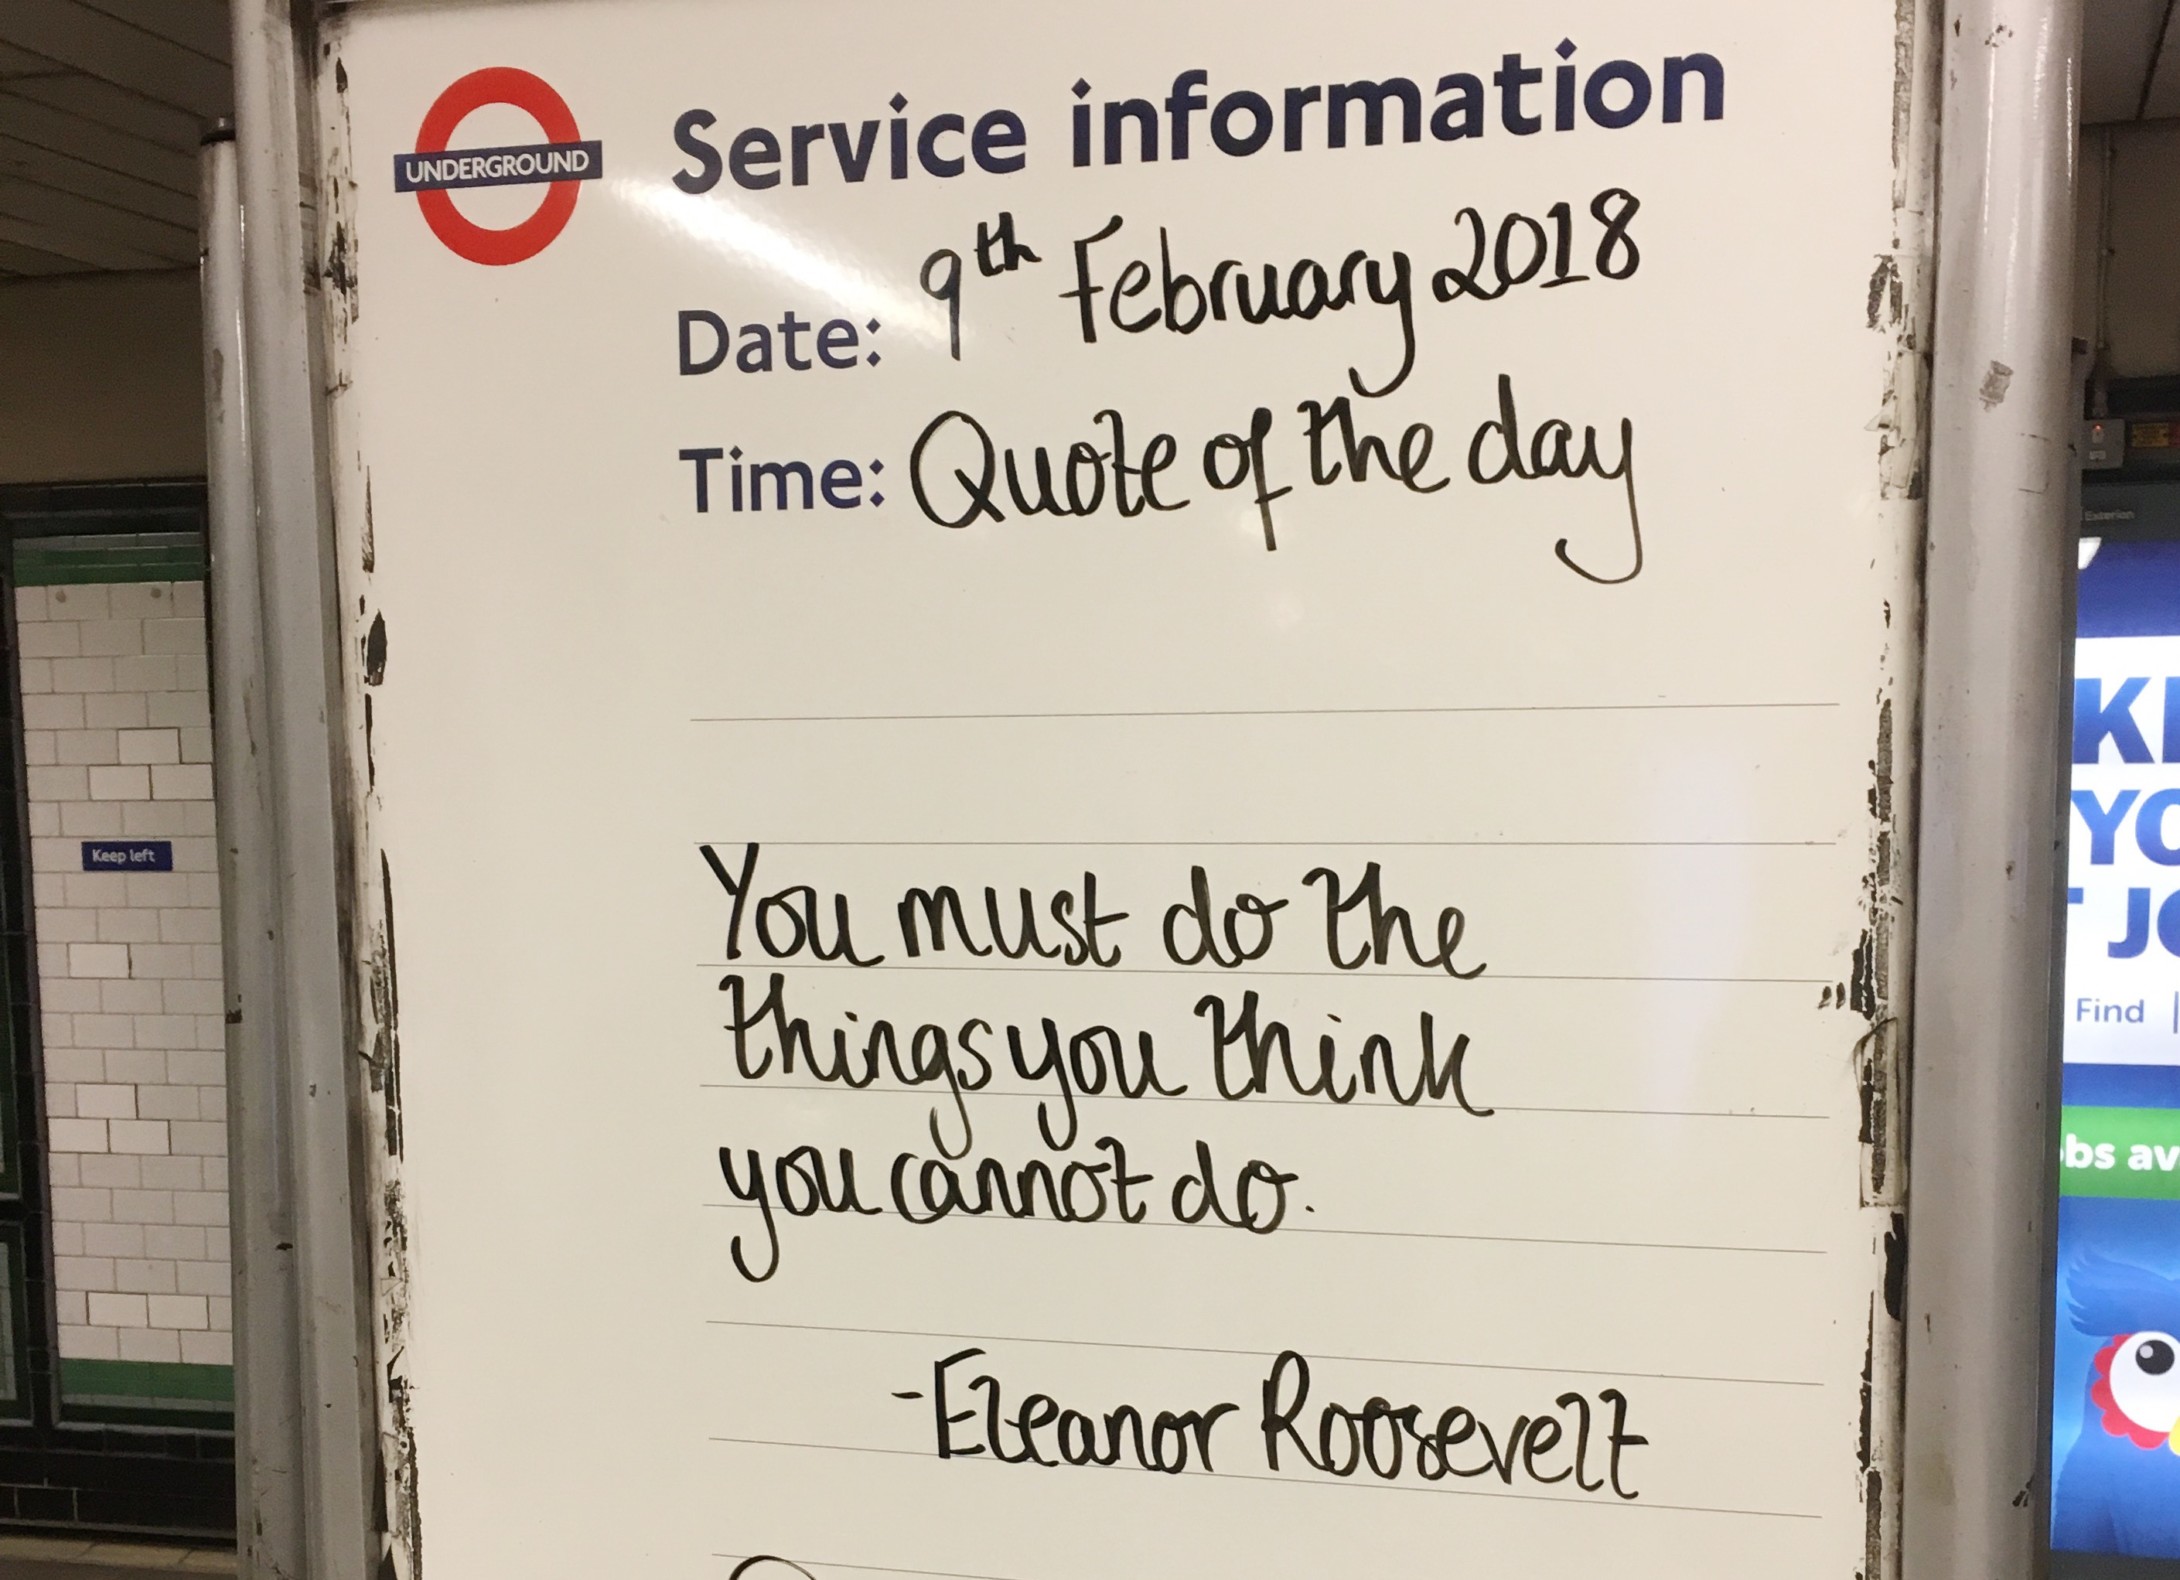 UNDERGROUND
Service information
Date: 9th February 2018
Time: Quote of the day
You must do the
things you think
you cannot do.
-Eleanor Roosevelt
Keep left
Exterion
KI
YO
T JO
Find |
obs av